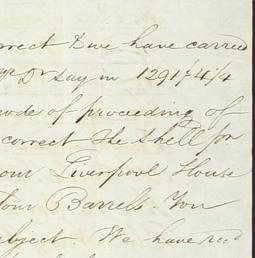 correct & we have carried
yr Dr say in 1291/4/4
mode of proceeding of
correct the shell for
our Liverpool House
four Barrels. You
subject. We have recd